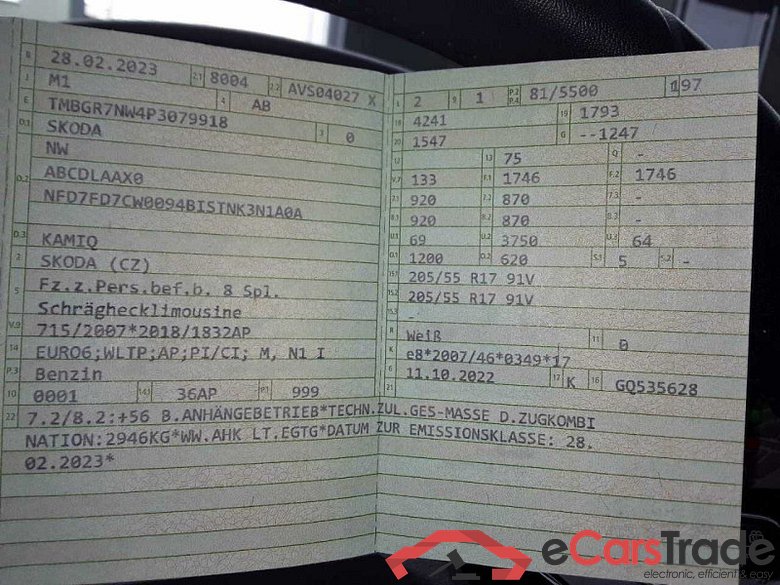 B 28.02.2023 2.1 8004 2.2 AVS04027 X
J M1 4 AB
E TMBGR7NW4P3079918 3 0
D.1 SKODA
NW
D.2 ABCDLAAX0
NFD7FD7CW0094BISTNK3N1A0A
D.3 KAMIQ
2 SKODA (CZ)
5 Fz.z.Pers.bef.b. 8 Spl.
Schräghecklimousine
V.9 715/2007*2018/1832AP
14 EURO6;WLTP;AP;PI/CI; M, N1 I
P.3 Benzin
10 0001 14.1 36AP P.1 999
L 2 9 1 P.2 P.4 81/5500 197
18 4241 19 1793
20 1547 G --1247
12 - 13 75 Q -
V.7 133 F.1 1746 F.2 1746
7.1 920 7.2 870 7.3 -
8.1 920 8.2 870 8.3 -
U.1 69 U.2 3750 U.3 64
O.1 1200 O.2 620 S.1 5 S.2 -
15.1 205/55 R17 91V
15.2 205/55 R17 91V
15.3 -
R Weiß 11 0
K e8*2007/46*0349*17
6 11.10.2022 17 K 16 GQ535628
21
22 7.2/8.2:+56 B.ANHÄNGEBETRIEB*TECHN.ZUL.GES-MASSE D.ZUGKOMBI
NATION:2946KG*WW.AHK LT.EGTG*DATUM ZUR EMISSIONSKLASSE: 28.
02.2023*
eCarsTrade
electronic, efficient & easy